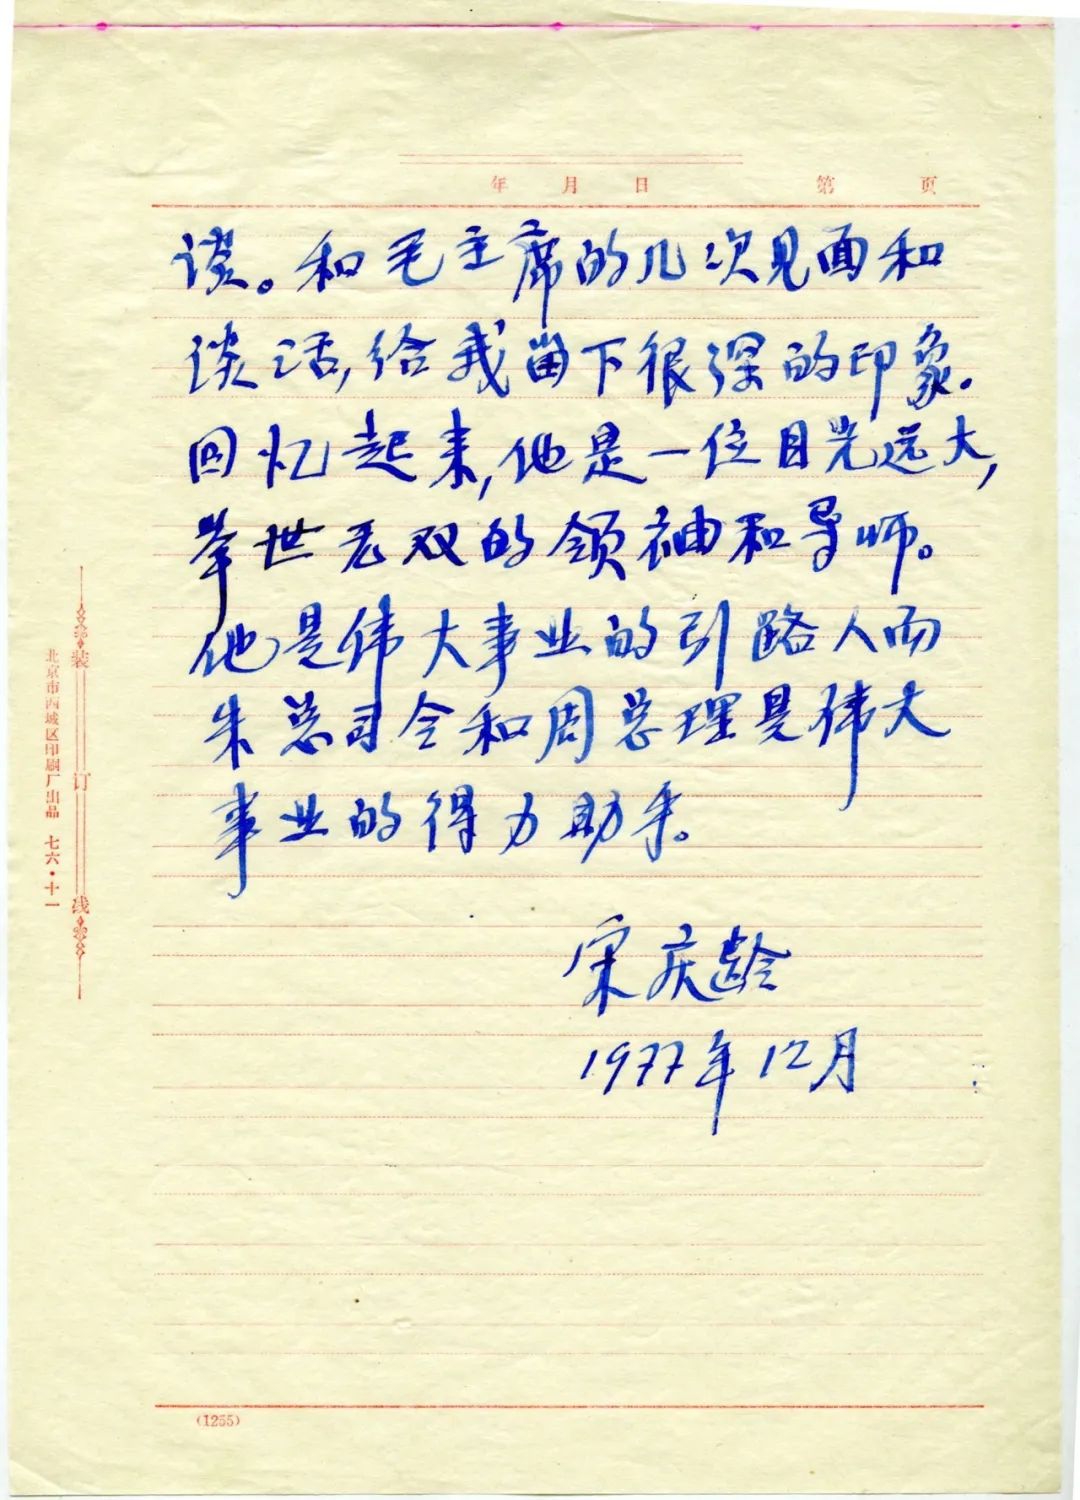 年 月 日 第 页
谈。和毛主席的几次见面和
谈话,给我留下很深的印象.
回忆起来,他是一位目光远大,
举世无双的领袖和导师。
他是伟大事业的引路人而
朱总司令和周总理是伟大
事业的得力助手。
宋庆龄
1977年12月
装订线
北京市西城区印刷厂出品 七六·十一
(1255)